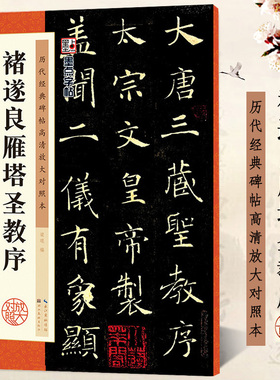 褚遂良雁塔圣教序
历代经典碑帖高清放大对照本
墨点字帖
大唐三藏聖教序
太宗文皇帝製
蓋聞二儀有象顯
放大
对照
历代经典碑帖高清放大对照本